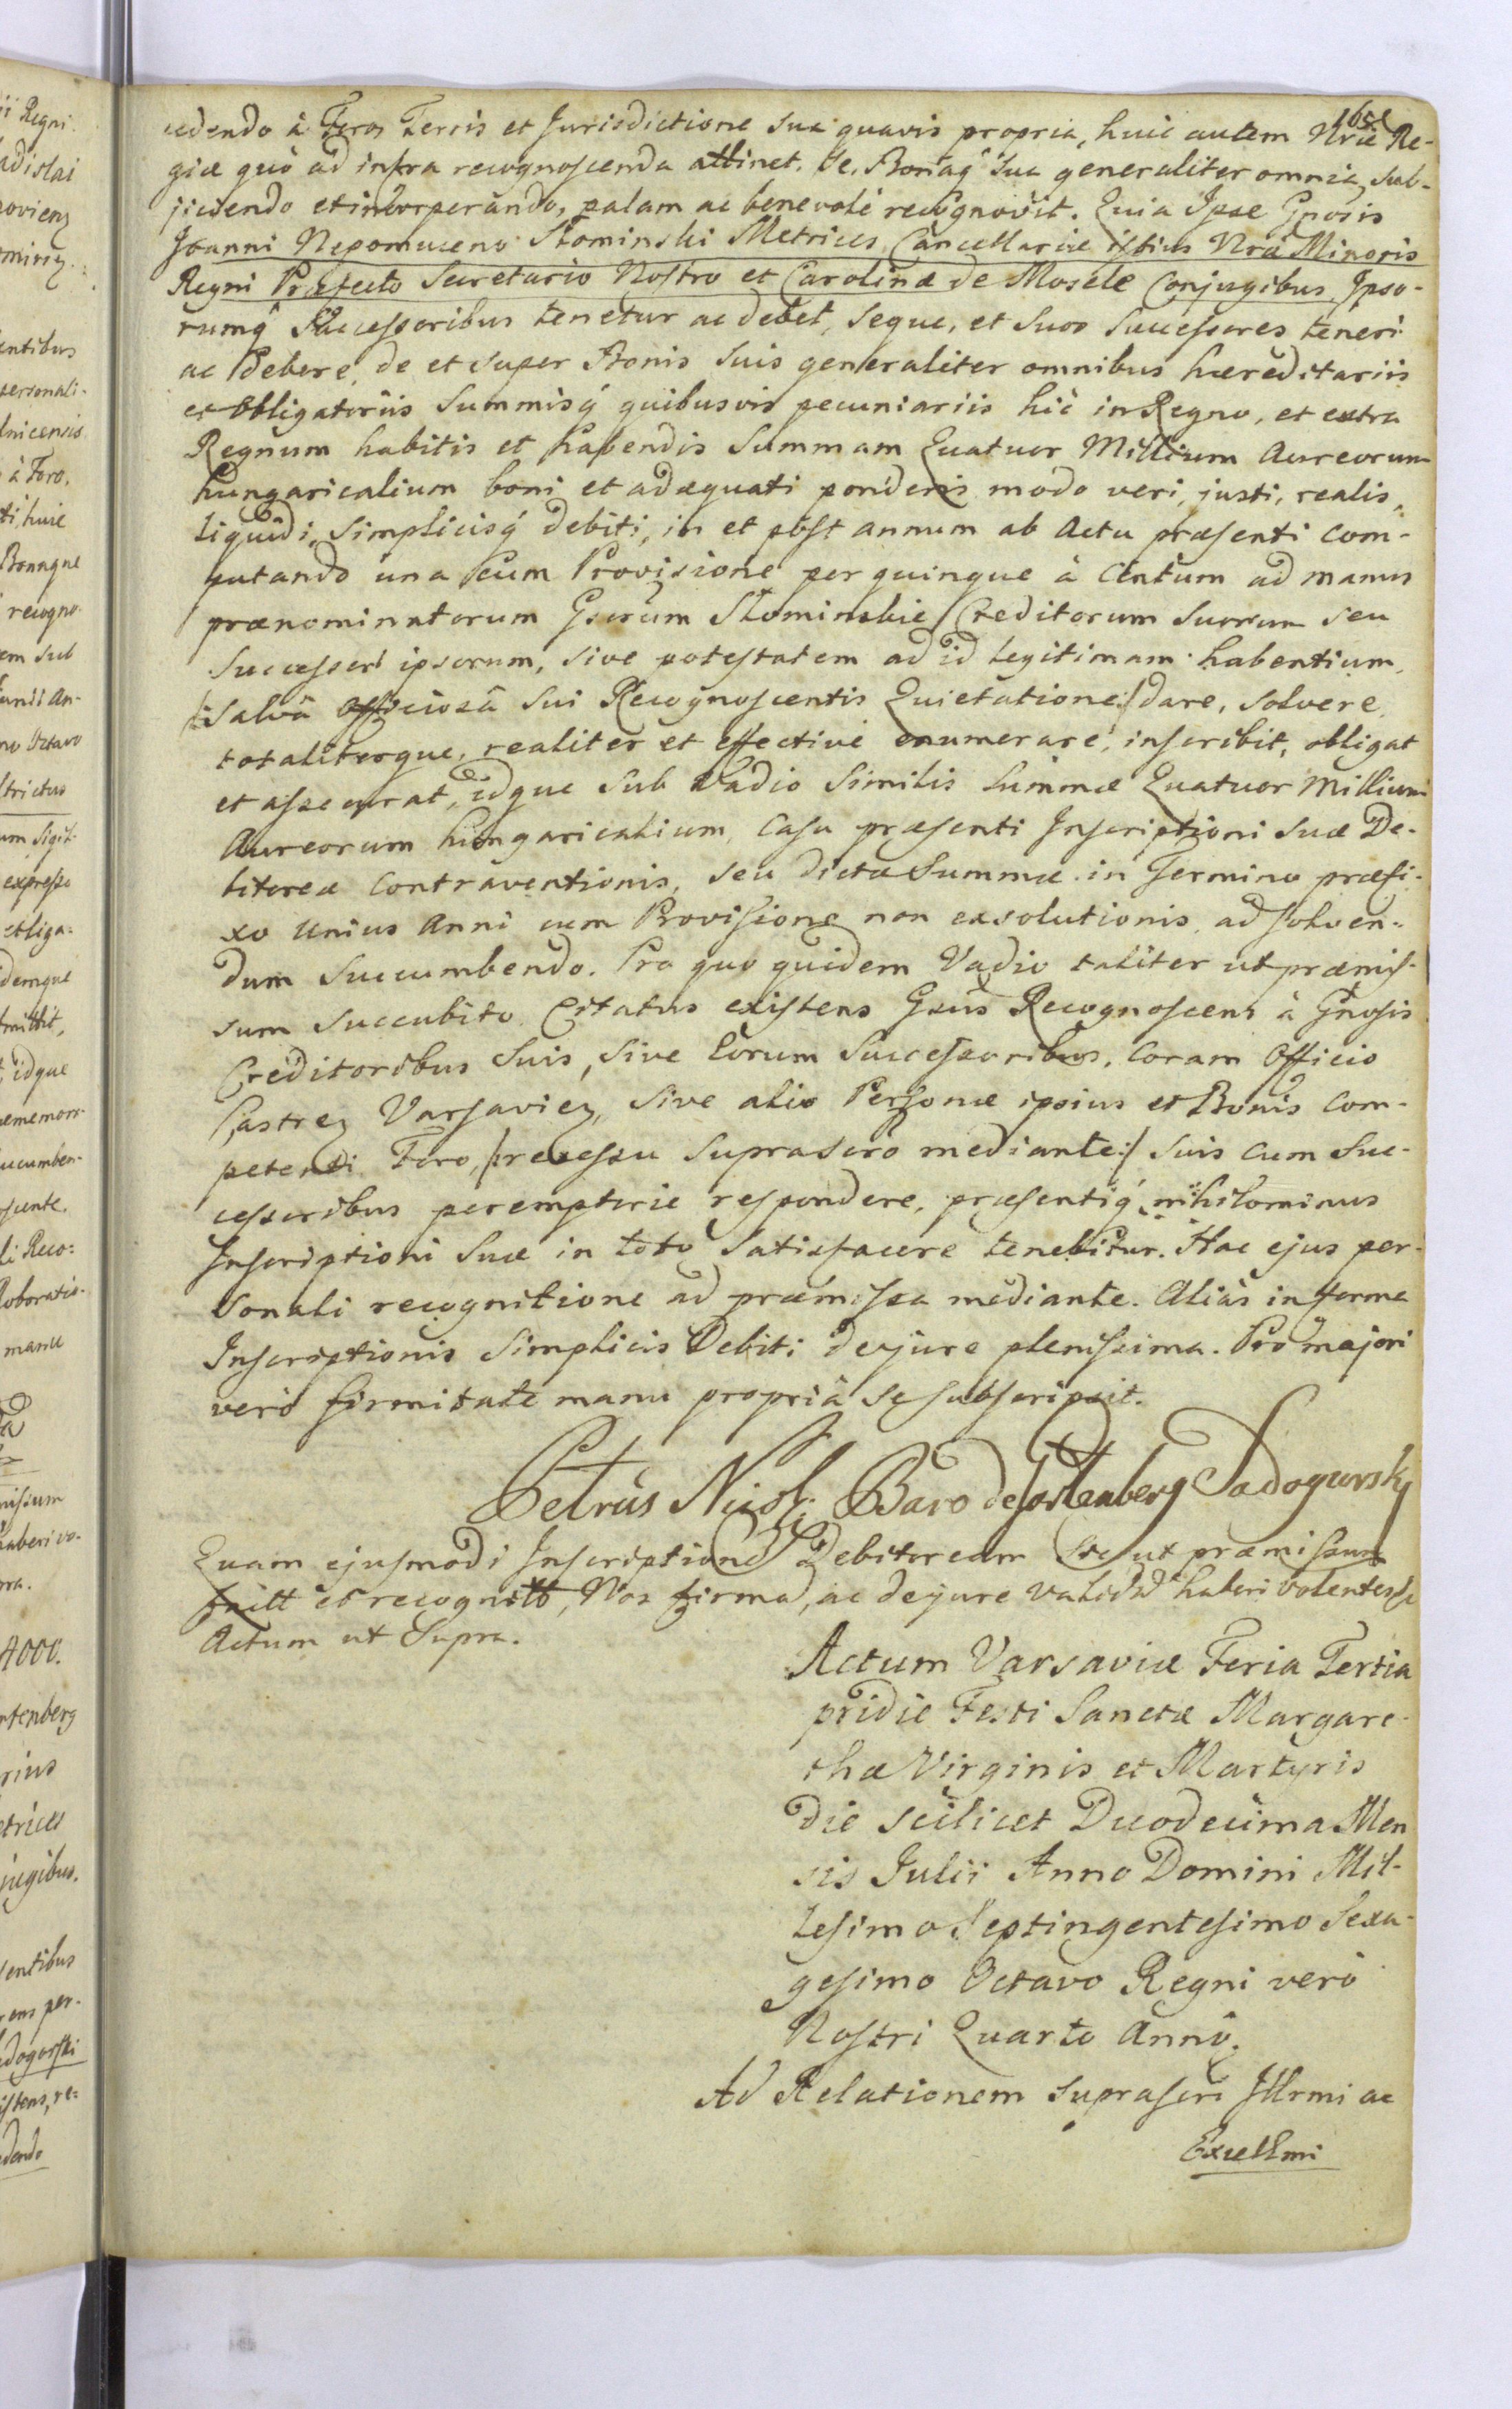 cedendo à Foro Terris et Jurisdictione sua quavis propria, huic autem Nrae Re-
giae quò ad infra recognoscenda attinet. Se, Bonaq̃ sua generaliter omnia, sub-
jiciendo et incorporando, palam ac benevolè recognovit. Quia Ipse Gnosis
Joanni Nepomuceno Słominski Metrices Cancellariae istius Nrae Minoris
Regni Praefecto Secretario Nostro et Carolinae de Mosele Conjugibus Ipso-
rumq̃ Successoribus tenetur ac debet, seque, et suos successores teneri
ac debere, de et super Bonis suis generaliter omnibus haereditariis
et obligatoriis Summisq̃ quibusvis pecuniariis hic in Regno, et extra
Regnum habitis et habendis Summam Quatuor Millium Aureorum
hungaricalium boni et adaequati ponderis modo veri, justi, realis,
liquidi, simplicisq̃ debiti, in et post annum ab Actu praesenti com-
putando una cum Provisione per quinque à Centum ad manus
praenominatorum Gsorum Słominskie Creditorum suorum seu
Successor ipsorum, sive potestatem ad id legitimam habentium,
/:salvâ officiosâ sui Recognoscentis Quietatione:/ dare, solvere,
totaliterque, realiter et effectivè enumerare, inscribit, obligat
et assecurat, idque sub Vadio similis Summae Quatuor Millium
Aureorum hungaricalium, casu praesenti Inscriptioni suae De-
bitoreae contraventionis, seu dictae Summae in Termino praefi-
xo unius Anni cum Provisione non exsolutionis, ad solven-
dum succumbendo. Pro quo quidem Vadio taliter ut praemis-
sum succubito Citatus existens Gsus Recognoscens à Gnosis
Creditoribus suis, sive eorum Successoribus, coram Officio
Castreȝ Varsavieȝ, sive alio Personae ipsius et Bonis com-
petenti Foro, /:recessu suprascro mediante:/ suis cum suc-
cessoribus peremptorie respondere, praesentiq̃ nihilominus
Inscriptioni suae in toto satisfacere tenebitur. Hac ejus per-
sonali recognitione ad praemissa mediante. Aliàs in forma
Inscriptionis simplicis Debiti dejure plenissima. Pro majori
verò firmitate manu propriâ se subscripsit.
Petrus Nicol: Baro de Gartenberg Sadogursky
Quam ejusmodi Inscriptione Debitoream Sic ut praemissum
fuitt et recognitt, Nos firmã, ac dejure validã haberi volentes &
Actum ut Supra.
Actum Varsaviae Feria Tertia
pridie Festi Sanctae Margare-
thae Virginis et Martyris
die scilicet Duodecima Men
sis Julii Anno Domini Mil-
lesimo Septingentesimo Sexa-
gesimo Octavo Regni verò
Nostri Quarto Anno.
Ad Relationem suprascri Illrmi ac
Excellmi